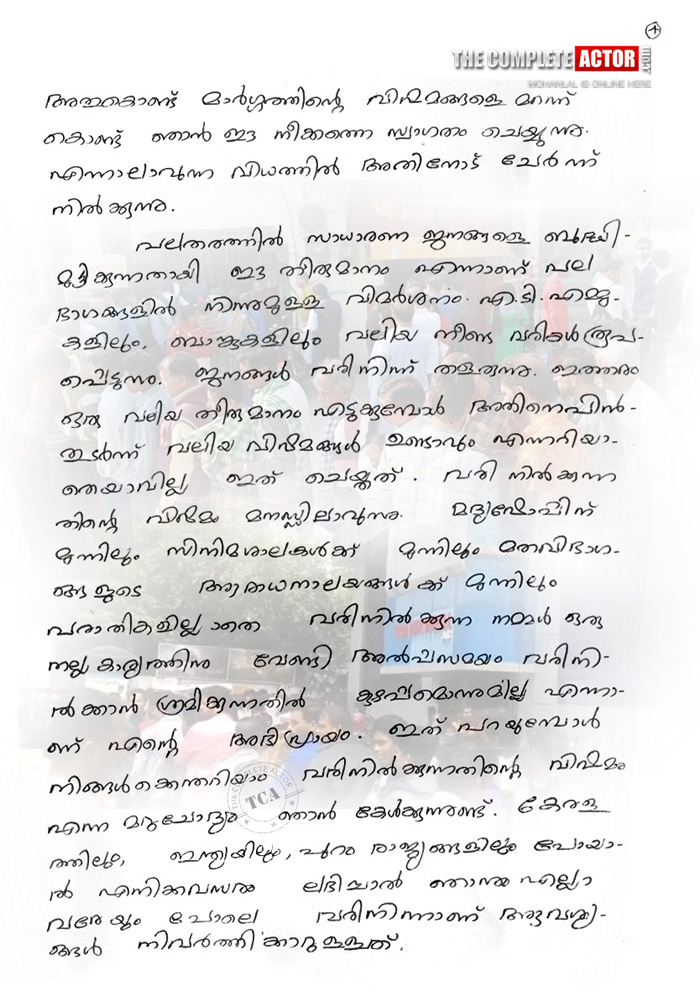 4
THE COMPLETE ACTOR .com
MOHANLAL IS ONLINE HERE
അതുകൊണ്ട് മാർഗ്ഗത്തിന്റെ വിഷമങ്ങളെ മറന്ന്
കൊണ്ട് ഞാൻ ഈ നീക്കത്തെ സ്വാഗതം ചെയ്യുന്നു.
എന്നാലാവുന്ന വിധത്തിൽ അതിനോട് ചേർന്ന്
നിൽക്കുന്നു.
പലതരത്തിൽ സാധാരണ ജനങ്ങളെ ബുദ്ധി-
മുട്ടിക്കുന്നതായി ഈ തീരുമാനം എന്നാണ് പല
ഭാഗങ്ങളിൽ നിന്നുമുള്ള വിമർശനം. എ.ടി.എമ്മു-
കളിലും, ബാങ്കുകളിലും വലിയ നീണ്ട വരികൾ രൂപ-
പ്പെടുന്നു. ജനങ്ങൾ വരിനിന്ന് തളരുന്നു. ഇത്തരം
ഒരു വലിയ തീരുമാനം എടുക്കുമ്പോൾ അതിനെപിൻ-
തുടർന്ന് വലിയ വിഷമങ്ങൾ ഉണ്ടാവും എന്നറിയാ-
തെയാവില്ല ഇത് ചെയ്തത്. വരി നിൽക്കുന്ന
തിന്റെ വിഷമം മനസ്സിലാവുന്നു. മദ്യഷോപ്പിന്
മുന്നിലും സിനിമശാലകൾക്ക് മുന്നിലും മതവിഭാഗ-
ങ്ങളുടെ ആരാധനാലയങ്ങൾക്ക് മുന്നിലും
പരാതികളില്ലാതെ വരിനിൽക്കുന്ന നമ്മൾ ഒരു
നല്ല കാര്യത്തിനു വേണ്ടി അൽപസമയം വരിനി-
ൽക്കാൻ ശ്രമിക്കുന്നതിൽ കുഴപ്പമൊന്നുമില്ല എന്നാ-
ണ് എന്റെ അഭിപ്രായം. ഇത് പറയുമ്പോൾ
നിങ്ങൾക്കെന്തറിയാം വരിനിൽക്കുന്നതിന്റെ വിഷമം
എന്ന മറുചോദ്യം ഞാൻ കേൾക്കുന്നുണ്ട്. കേരള
ത്തിലും, ഇന്ത്യയിലും, പുറം രാജ്യങ്ങളിലും പോയാ-
ൽ എനിക്കവസരം ലഭിച്ചാൽ ഞാനും എല്ലാ
വരേയും പോലെ വരിനിന്നാണ് ആവശ്യ-
ങ്ങൾ നിവർത്തിക്കാറുള്ളത്.
THE COMPLETE ACTOR
TCA